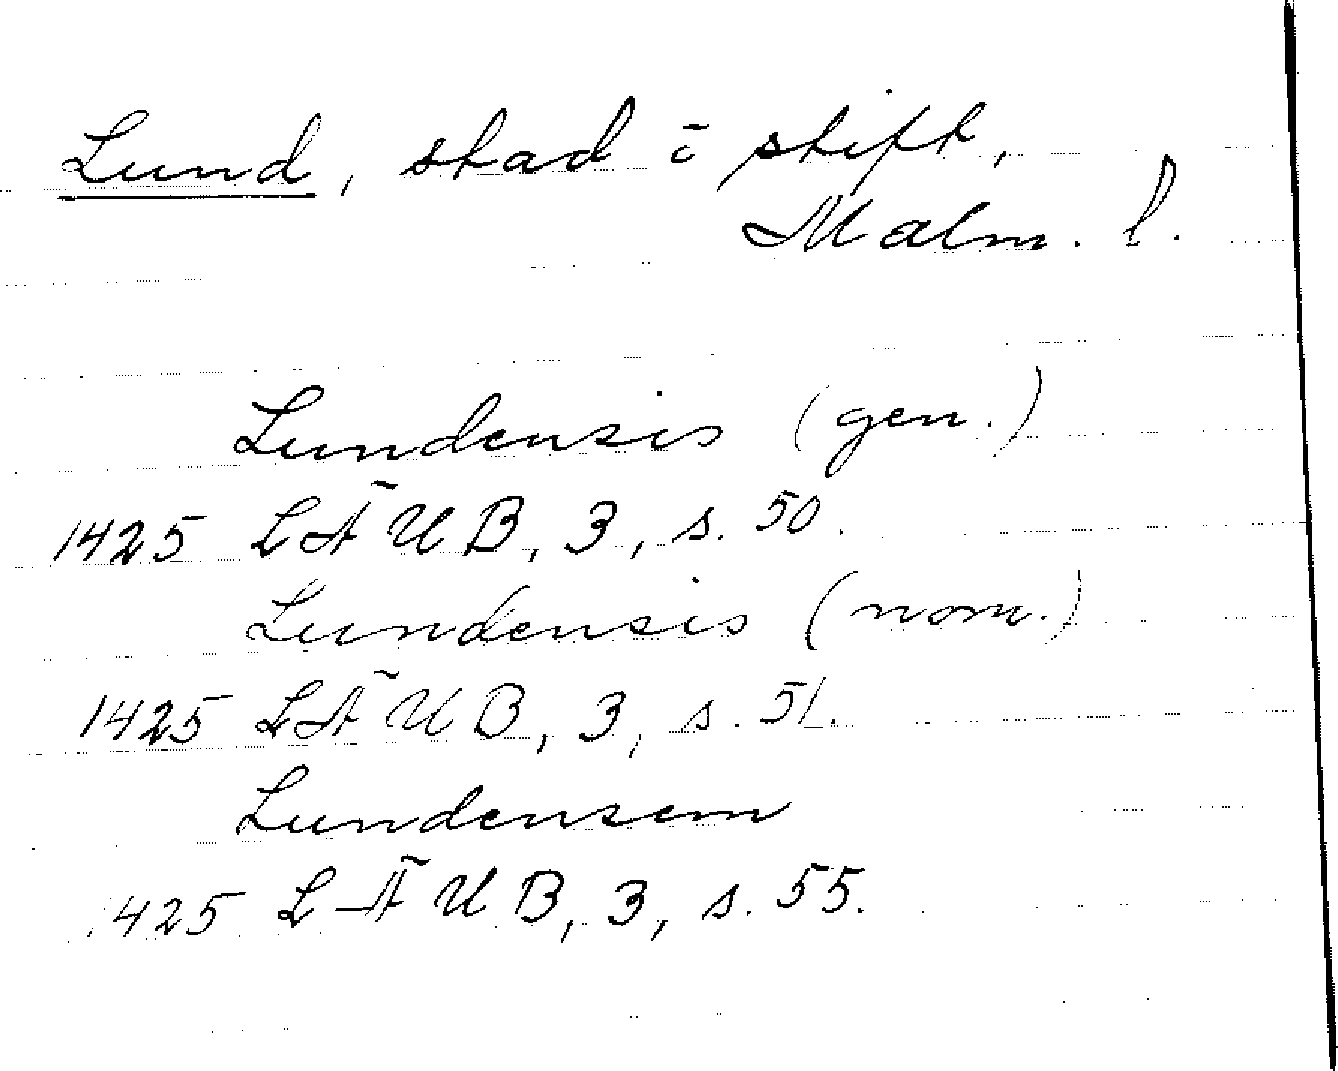 Lund, stad ö stift,
Malm. l.
Lundensis (gen.)
1425 LÄUB, 3, s. 50.
Lundensis (nom.)
1425 LÄUB, 3, s. 51.
Lundensem
1425 LÄUB, 3, s. 55.